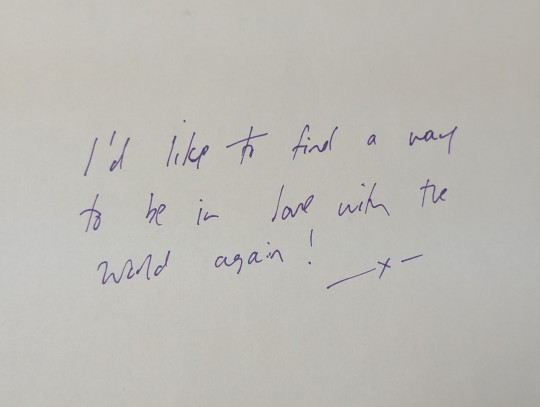 I'd like to find a way
to be in love with the
world again!
—x—